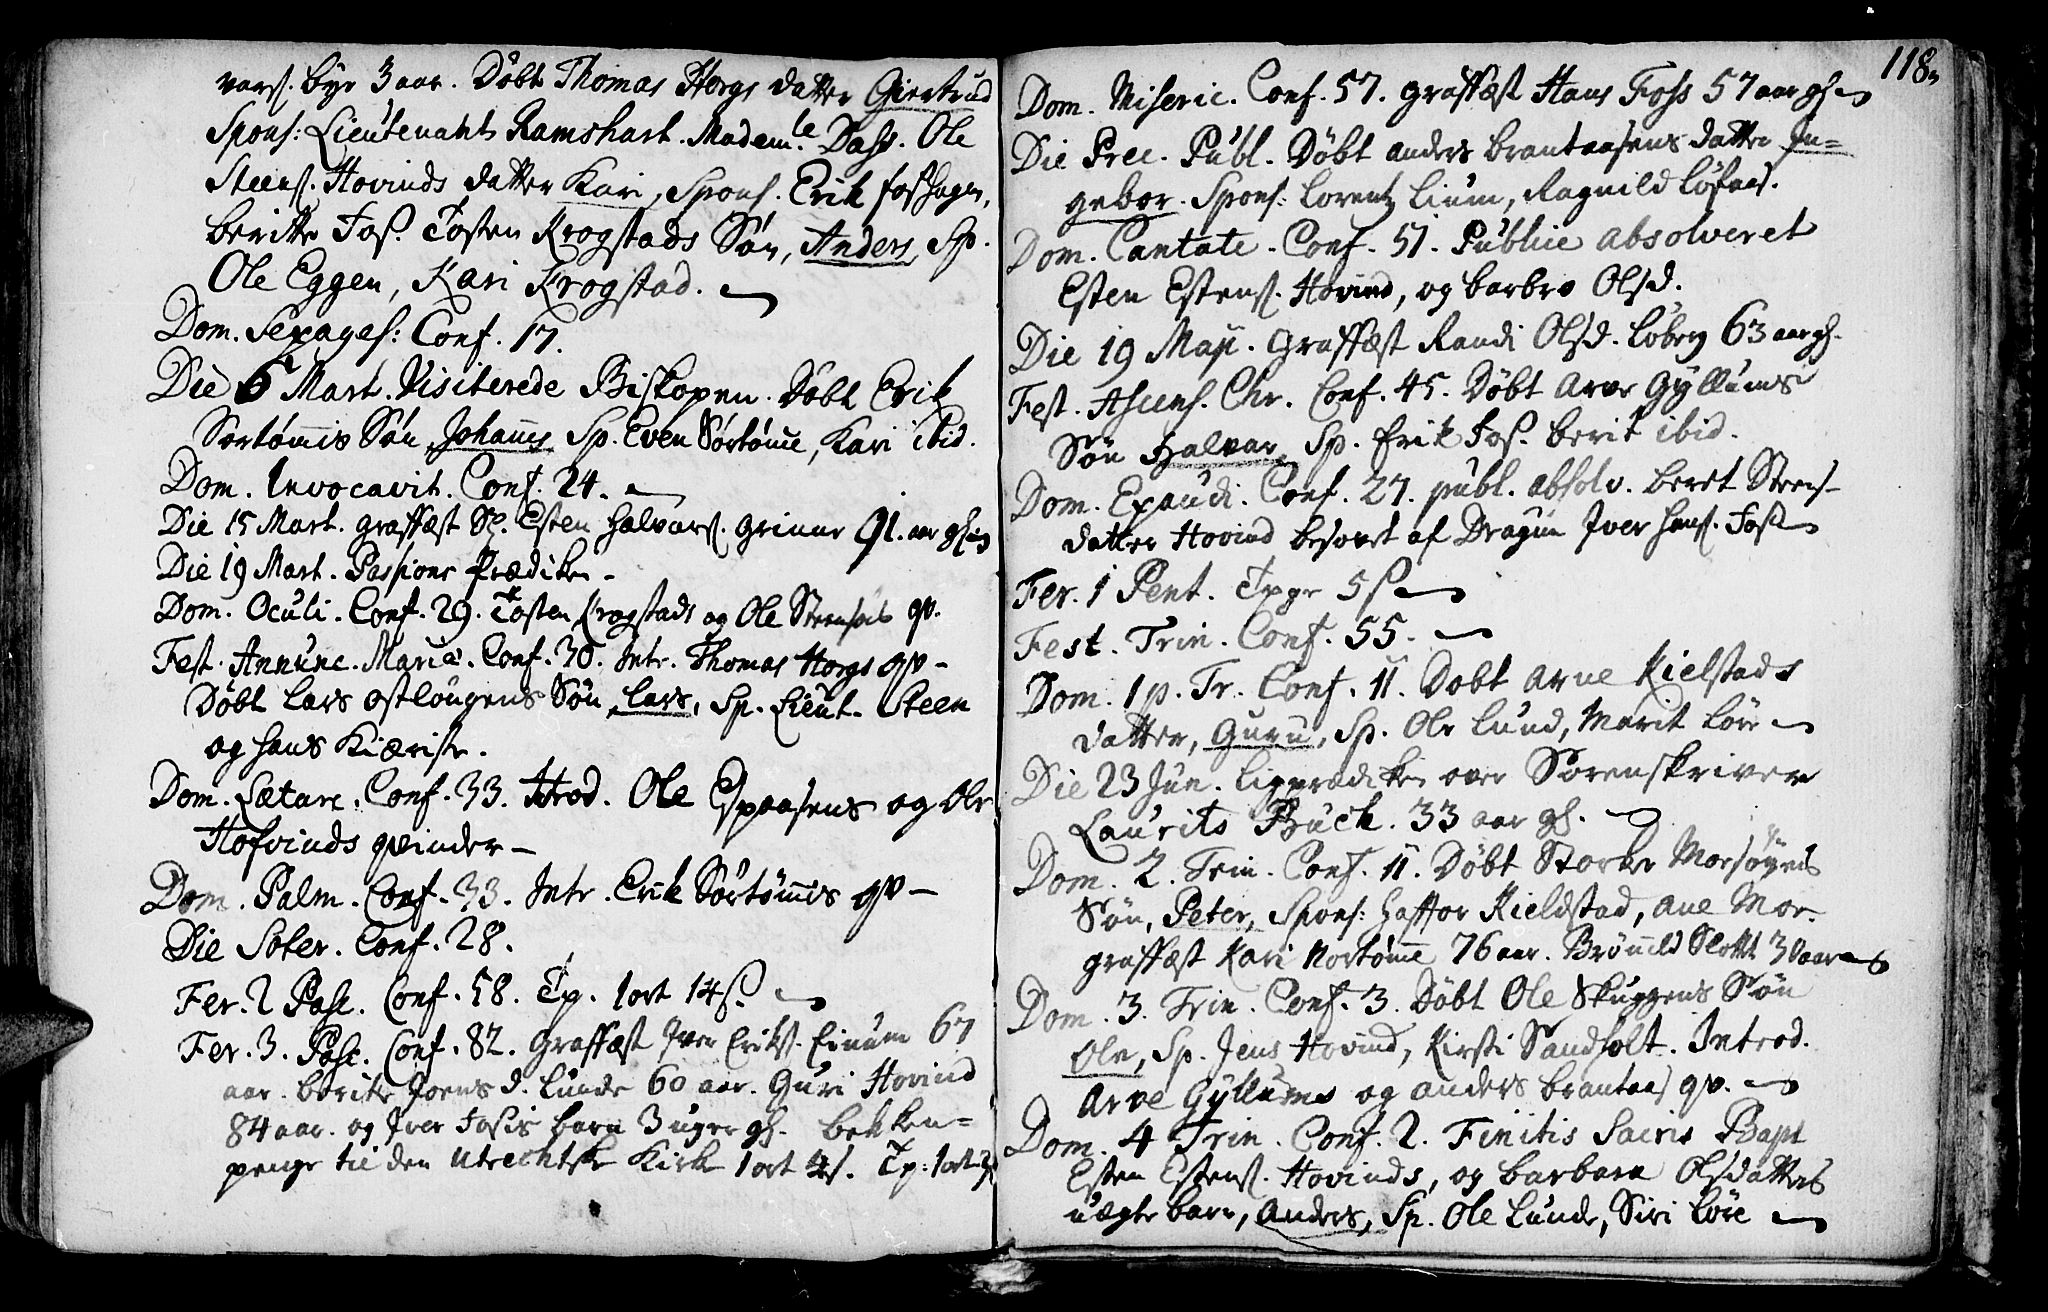 vars. bye 3 aar. Døbt Thomas Horgs datter Giertrud
Spons: Lieutenant Ramshart. Madem.le Dass. Ole
Steens. Hovinds datter Kari, Spons. Erik foshagen,
beritte Fos. Tosten Krogstads Søn, Anders, Sp.
Ole Eggen, Kari Krogstad.
Dom. Sexages: Conf. 17.
Die 6 Mart. Visiterede Biskopen. Døbt Erik
Sørtømmis Søn, Johannes Sp. Even Sørtømme, Kari ibid.
Dom. Invocavit. Conf. 24.
Die 15 Mart. graffæst Esten halvars. grinne 91. aar
Die 19 Mart. Passions Prædiken
Dom. Oculi. Conf. 29. Tosten Krogstads og Ole qv.
Fest. Annunc. Mariæ. Conf. 30. Intr. Thomas Horgs qv
Døbt Lars ostlougens Søn, Lars, Sp. Lieut. Steen
og hans Kiæriste.
Dom. Lætare. Conf. 33. Introd. Ole Espaasens og Ole
Hofvinds qvinder
Dom. Palm. Conf. 33. Intr. Erik Sørtømmis qv
Die Soter. Conf. 28.
Fer. 2 Pasc. Conf. 58. Tp. 1 ort 14 s.
Fer. 3. Pasc. Conf. 82. graffæst Iver Eriks. Einum 67
aar. berite Joens d. Lunde 60 aar. Guri Hovind
84 aar. og Iver Fossis barn 3 uger gl. bekken=
penge til den Utrechtske Kirke 1 ort 4 s. Tp: 1 ort
118
Dom. Miseric. Conf. 57. graffæst Hans Foss 57 aar gl.
Die Prec. Publ. Døbt anders brantaasens datter In=
gebor. Spons: Lorentz Lium, Ragnild Løfaas.
Dom. Cantate. Conf. 51. Publice absolveret
Esten Estens. Hovind, og barbro Olsd.
Die 19 Maji. graffæst Randi Olsd. Løberg 63 aar gl.
Fest. Ascens. Chr. Conf. 45. Døbt Arve Gyllums
Søn Halvar, Sp. Erik Fos. berit ibid.
Dom. Exaudi. Conf. 27. publ. absolv. beret Steens
datter Hovind besovet af Dragun Iver hans. Foss
Fer. 1 Pent. Tpge 5 s
Fest. Trin. Conf. 55.
Dom. 1 p. Tr. Conf. 11. Døbt Arne Kielstads
datter, Guru, Sp. Ole Lund, Marit Løre
Die 23 Jun. Liigprædiken over Sorenskriver
Laurits Buch. 33 aar gl.
Dom. 2. Trin. Conf. 11. Døbt Storker Morsøyens
Søn, Peter, Spons: haffor Kieldstad, ane Mor.
graffæst Kari Nortømme 76 aar. Brønild Slette 30 aar
Dom. 3. Trin. Conf. 3. Døbt Ole Skuggens Søn
Ole, Sp. Jens Hovind, Kirsti Sandholt. Introd.
Arve Gyllums og anders brantaas qv.
Dom. 4 Trin. Conf. 2. Finitis Sacris Bapt
Esten Estens. Hovinds, og barbara Olsdatters
uægte barn, Anders, Sp. Ole Lunde, Siri Løre